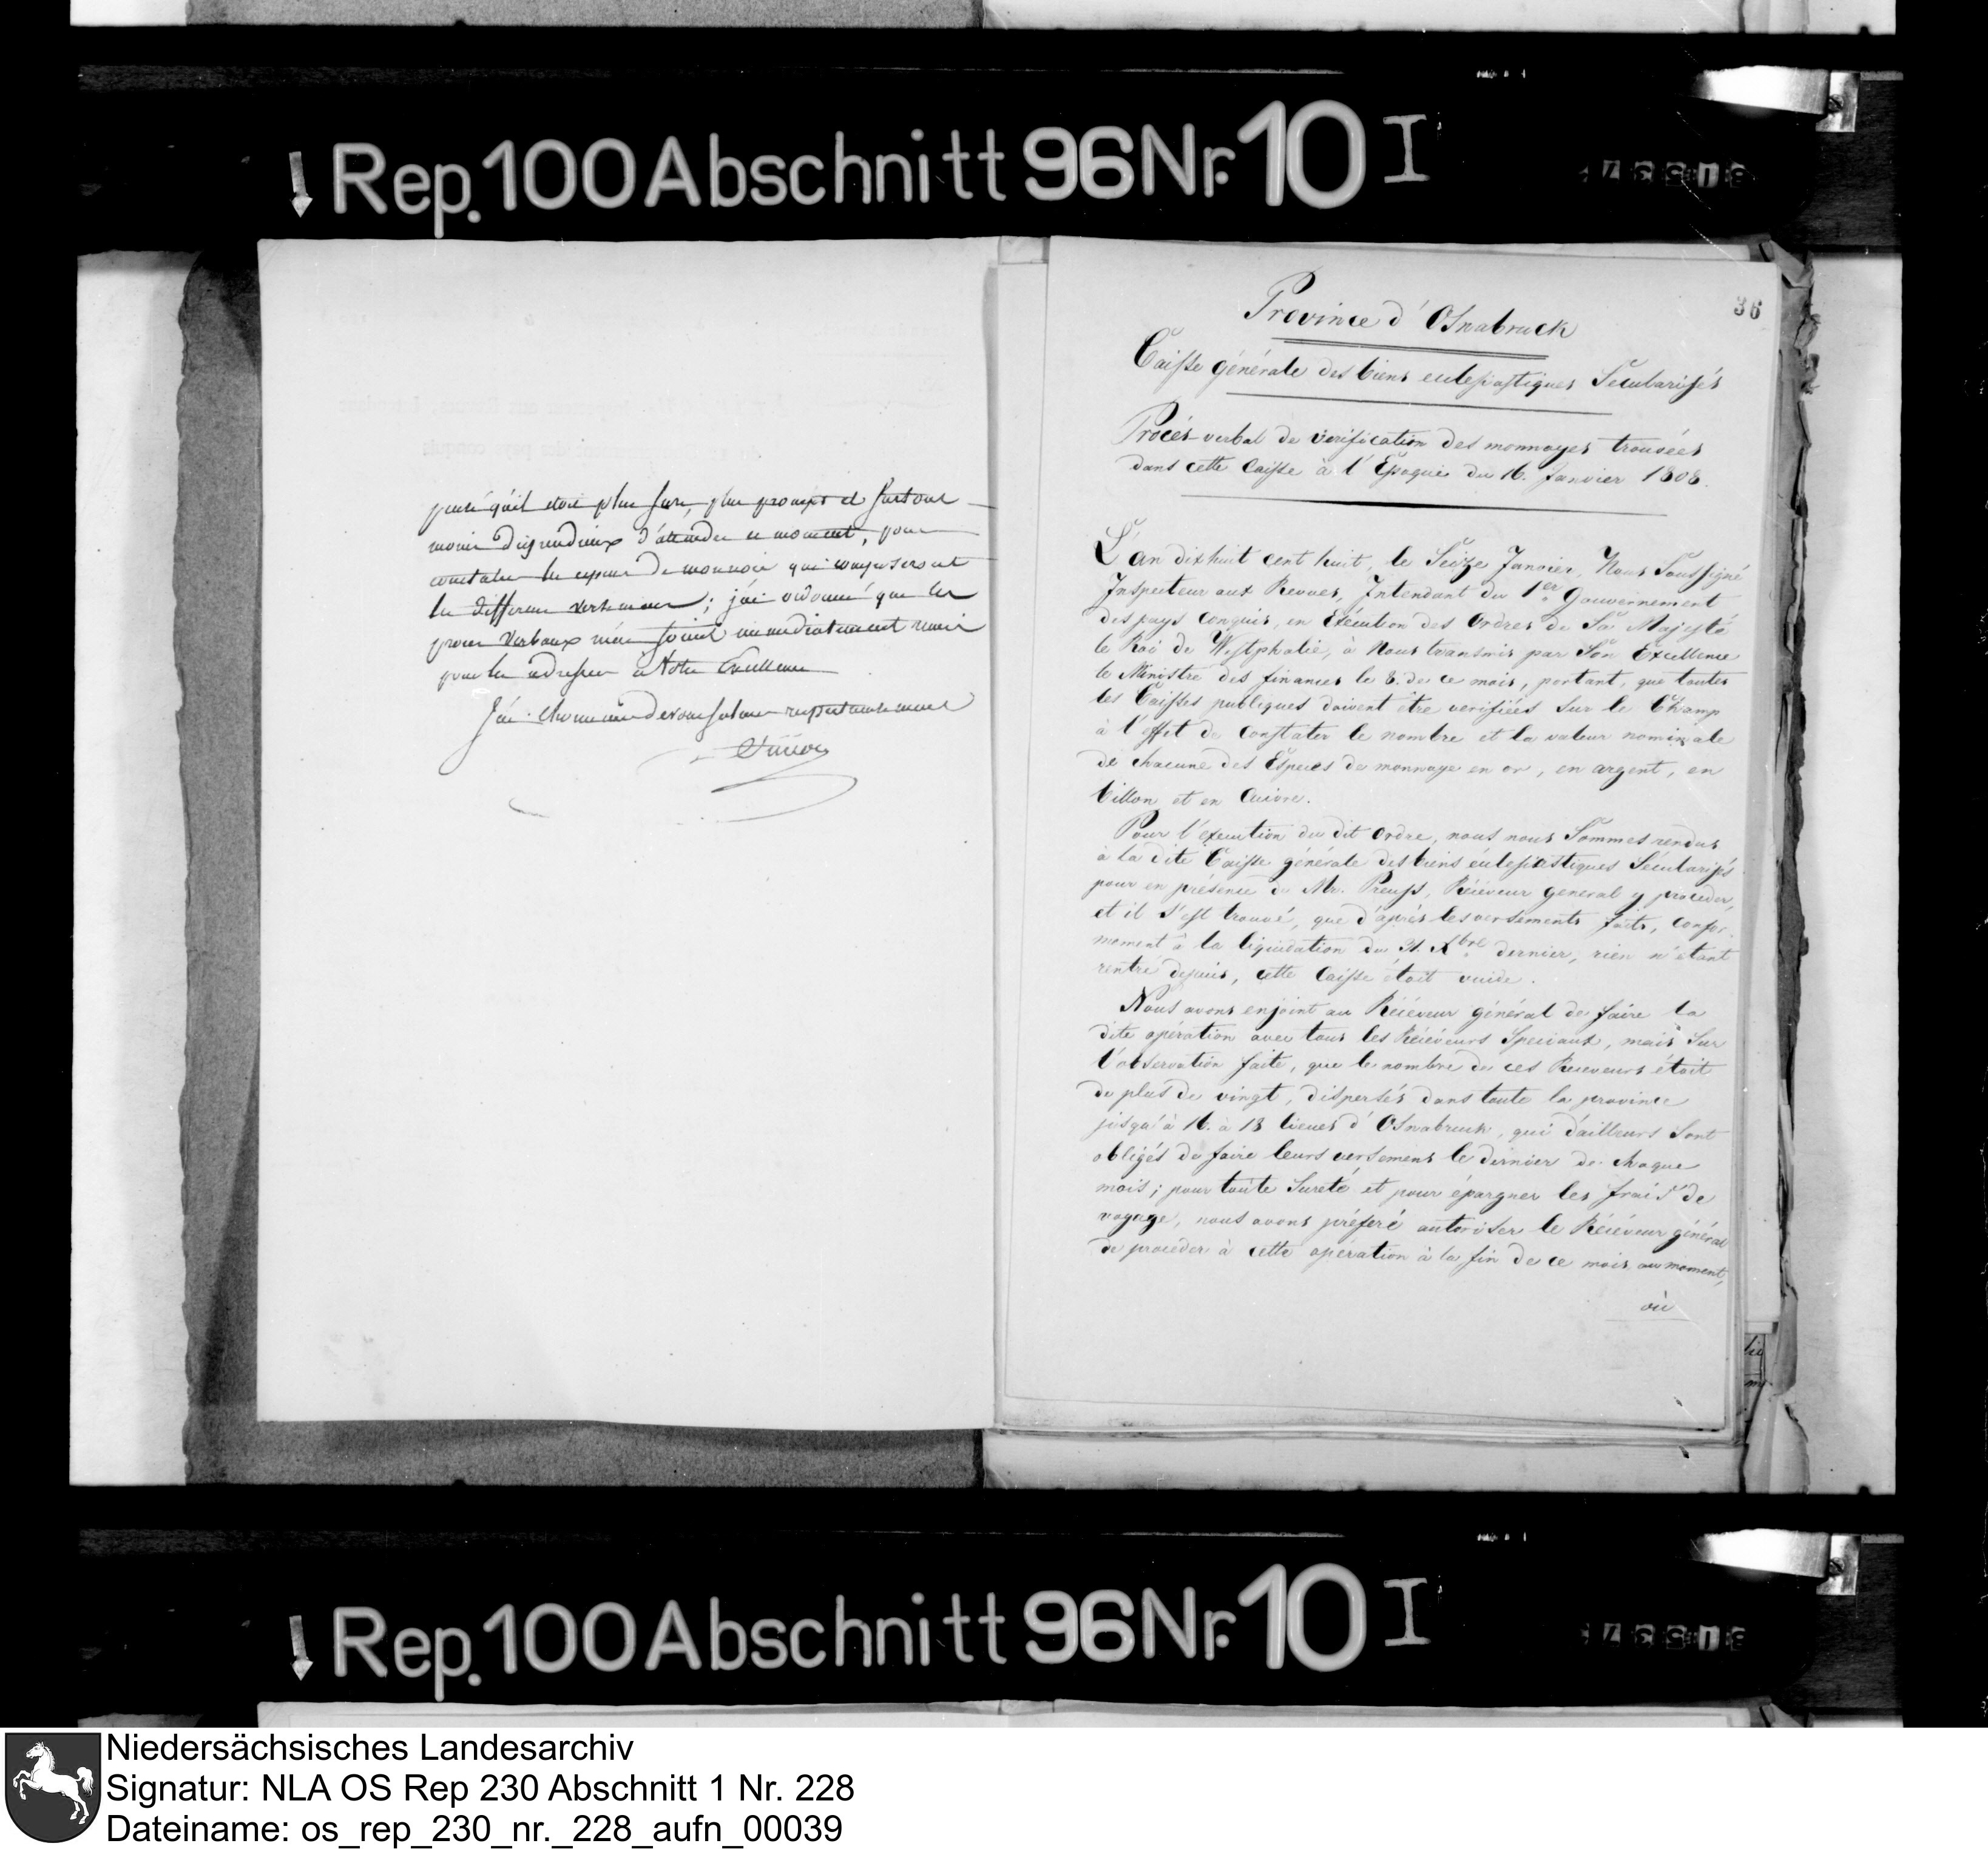 Rep. 100 Abschnitt 96 Nr. 10 I
pensé qu'il etoit plus sure, plus prompt et surtout
moins dispendieux d'attendre ce moment, pour
constater les especes de monnoie qui composeront
les differens versemens; j'ai ordonné que les
procès verbaux m'en soient immediatement remis
pour les adresser à Votre Excellence
J'ai l'honneur de vous saluer respectueusement
36
Province d'Osnabruck
Caisse générale des biens eclesiastiques Secularisés
Procés-verbal de verification des monnoyes trouvées
dans cette Caisse à l'Epoque du 16. Janvier 1808.
L'an dixhuit cent huit, le Seize Janvier, Nous Soussigné
Inspecteur aux Revues, Intendant du 1er Gouvernement
des pays Conquis, en Exécution des Ordres de Sa Majesté
le Roi de Westphalie, à Nous transmis par Son Excellence
le Ministre des finances le 8. de ce mois, portant, que toutes
les Caisses publiques doivent être verifiées sur le Champ
à l'effet de Constater le nombre et la valeur nominale
de chacune des Especes de monnaye en or, en argent, en
billon et en Cuivre.
Pour l'execution du dit Ordre, nous nous Sommes rendus
à la dite Caisse générale des biens éclesiastiques Sécularisés
pour en présence de Mr. Preuss, Réceveur general y proceder,
et il s'est trouvé, que d'après les versements faits, confor-
mement à la liquidation du 31. Xbre dernier, rien n'étant
rentré depuis, cette Caisse étoit vuide.
Nous avons enjoint au Réceveur général de faire la
dite opération avec tous les Réceveurs Speciaux, mais Sur
l'observation faite, que le nombre de ces Receveurs étoit
de plus de vingt, dispersés dans toute la province
jusqu'à 16. à 18 lieues d'Osnabruck, qui d'ailleurs Sont
obligés de faire leurs versemens le dernier de chaque
mois; pour toute Sureté et pour épargner les frais de
voyage, nous avons préferé autoriser le Réceveur général
de proceder à cette opération à la fin de ce mois au moment,
où
Rep. 100 Abschnitt 96 Nr. 10 I
Niedersächsisches Landesarchiv
Signatur: NLA OS Rep 230 Abschnitt 1 Nr. 228
Dateiname: os_rep_230_nr._228_aufn_00039